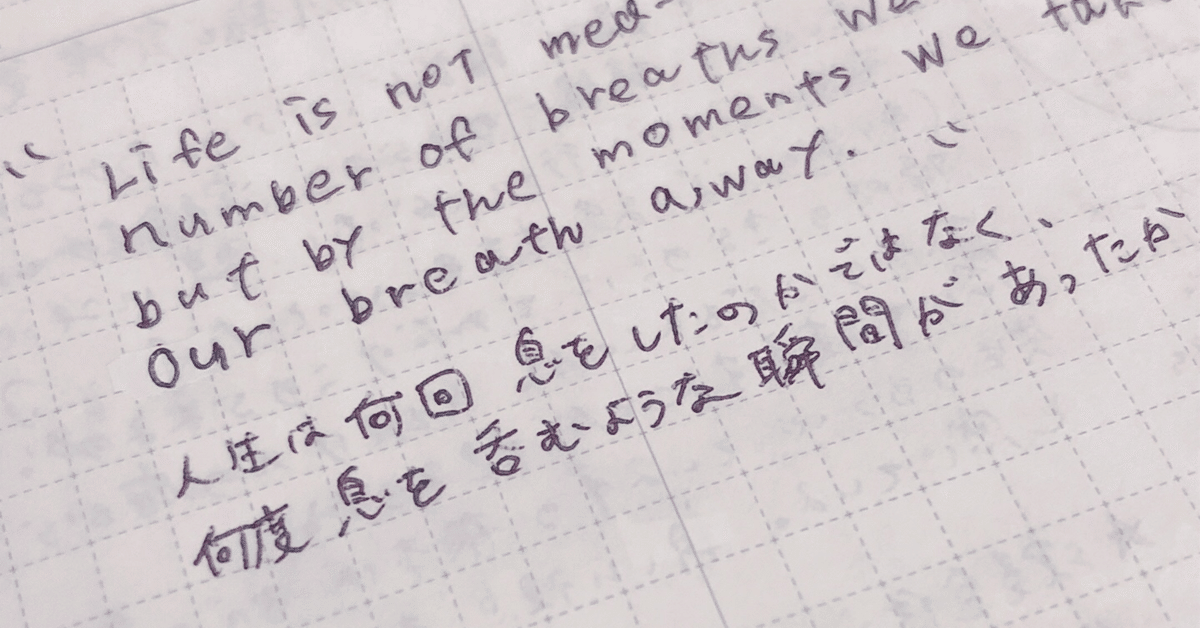 “ Life is not med-
number of breaths we
but by the moments we tak
our breath away. ”
人生は何回息をしたのかではなく、
何度息を呑むような瞬間があったか